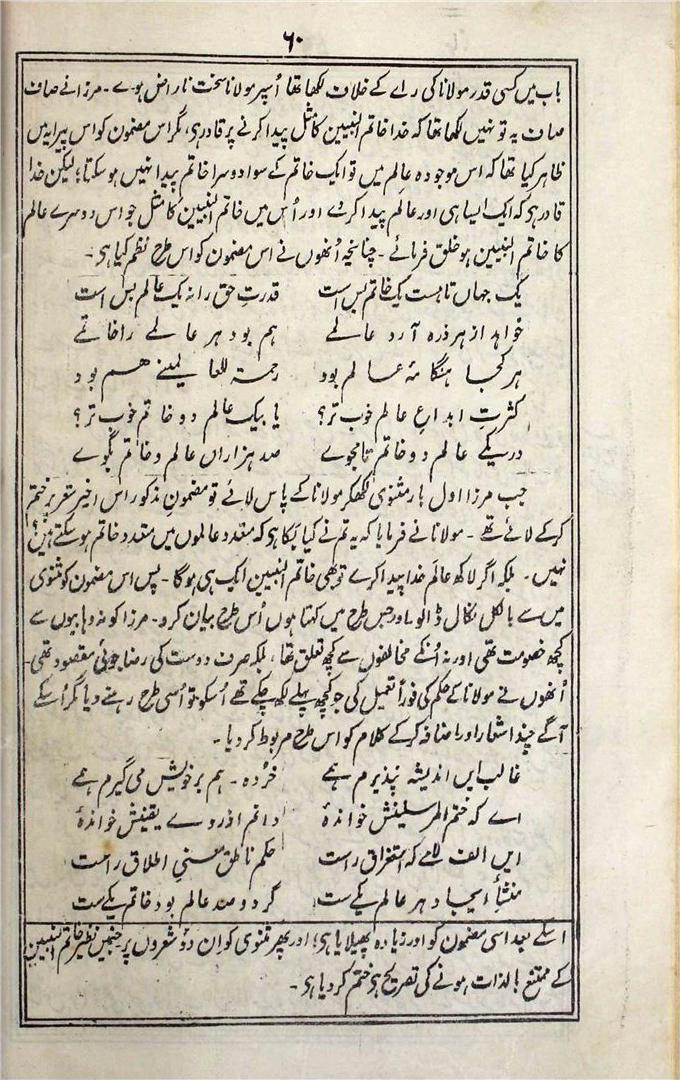 ۶۰
باب میں کسی قدر مولانا کی راے کے خلاف لکھا تھا اُسپر مولانا سخت ناراض ہوے ۔ مرزا نے صاف
صاف یہ تو نہیں لکھا تھا کہ خدا خاتم النبیین کا مثل پیدا کرنے پر قادر ہی، مگر اس مضمون کو اس پیرایہ میں
ظاہر کیا تھا کہ اس موجودہ عالم میں تو ایک خاتم کے سوا دوسرا خاتم پیدا نہیں ہو سکتا؛ لیکن خدا
قادر ہی کہ ایک ایسا ہی اور عالم پیدا کر دے اور اُس میں خاتم النبیین کا مثل جو اس دوسرے عالم
کا خاتم النبیین ہو خلق فرمائے ۔ چنانچہ اُنھوں نے اس مضمون کو اس طرح نظم کیا ہی ۔
یک جہاں تا ہست یک خاتم بس است قدرتِ حق را نہ یک عالم بس است
خواہد از ہر ذرہ آرد عالمے ہم بود ہر عالمے را خاتمے
ہر کجا ہنگامۂ عالم بود رحمۃ للعالمینے ہم بود
کثرتِ ابداعِ عالم خوب تر؟ یا بیک عالم دو خاتم خوب تر؟
در یکے عالم دو خاتم تا مجوے صد ہزاراں عالم و خاتم بگوے
جب مرزا اول بار مثنوی لکھکر مولانا کے پاس لائے تو مضمونِ مذکور اس اخیر شعر پر ختم
کر کے لائے تھے ۔ مولانا نے فرمایا کہ یہ تم نے کیا بکا ہی کہ متعدد عالموں میں متعدد خاتم ہو سکتے ہیں؟
نہیں ۔ بلکہ اگر لاکھ عالم خدا پیدا کرے تو بھی خاتم النبیین ایک ہی ہوگا ۔ پس اس مضمون کو مثنوی
میں سے بالکل نکال ڈالو اور جس طرح میں کہتا ہوں اُس طرح بیان کرو ۔ مرزا کو نہ وہابیوں سے
کچھ خصومت تھی اور نہ اُنکے مخالفوں سے کچھ تعلق تھا، بلکہ صرف دوست کی رضا جوئی مقصود تھی ۔
اُنھوں نے مولانا کے حکم کی فوراً تعمیل کی جو کچھ پہلے لکھ چکے تھے اُسکو تو اُسی طرح رہنے دیا مگر اُسکے
آگے چند اشعار اور اضافہ کر کے کلام کو اس طرح مربوط کر دیا ۔
غالب ایں اندیشہ نپذیرم ہمے خردہ ۔ ہم بر خویش می گیرم ہمے
اے کہ ختم المرسلینش خواندۂ دانم از روے یقینش خواندۂ
ایں الف لامے کہ استغراق راست حکم ناطق معنیِ اطلاق راست
منشأِ ایجاد ہر عالم یکے ست گر دو صد عالم بود خاتم یکے ست
اسکے بعد اسی مضمون کو اور زیادہ پھیلایا ہی؛ اور پھر مثنوی کو اِن دو شعروں پر جنمیں نظیر خاتم النبیین
کے ممتنع بالذات ہونے کی تصریح ہی ختم کر دیا ہی ۔